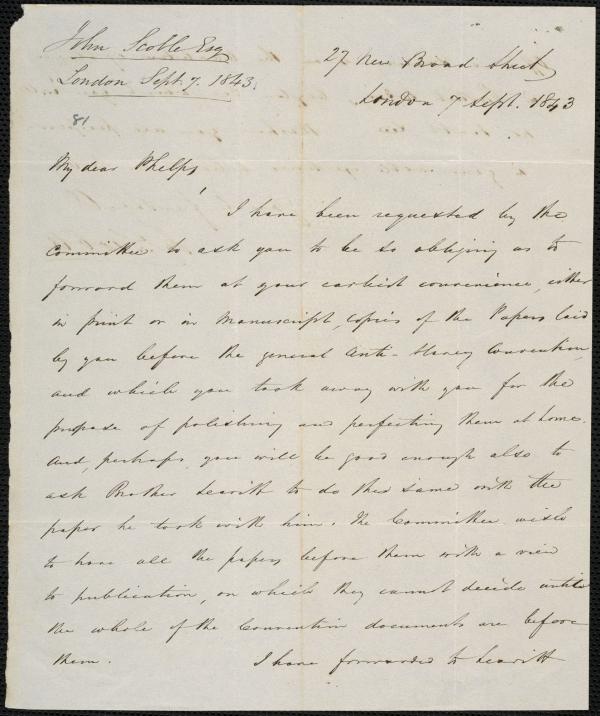 John Scoble Esq
London Sept. 7. 1843.
27 New Broad Street
London 7 Sept. 1843
81
My dear Phelps,
I have been requested by the
Committee to ask you to be so obliging as to
forward them at your earliest convenience, either
in print or in manuscript, copies of the Papers laid
by you before the general Anti-Slavery Convention,
and which you took away with you for the
purpose of polishing and perfecting them at home.
And, perhaps, you will be good enough also to
ask Brother Leavitt to do the same with the
paper he took with him. The Committee wish
to have all the papers before them with a view
to publication, on which they cannot decide until
the whole of the Convention documents are before
them. I have forwarded to Leavitt